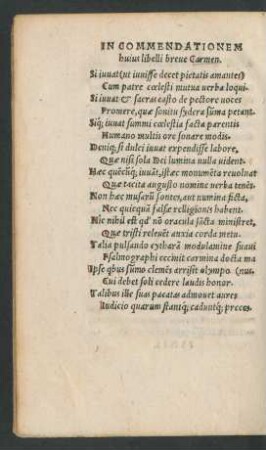 IN COMMENDATIONEM
huius libelli breue Carmen.
Si iuuat (ut iuuisse decet pietatis amantes)
Cum patre cœlesti mutua uerba loqui.
Si iuuat & sacras casto de pectore uoces
Promere, quæ sonitu sydera sūma petant.
Siq; iuuat summi cœlestia facta parentis
Humano multis ore sonare modis.
Deniq; si dulci iuuat expendisse labore,
Quæ nisi sola Dei lumina nulla uident.
Hæc quēcūq; iuuāt, istæc monumēta reuoluat
Quæ tacita augusto nomine uerba tenēt.
Non hæc musarū fontes, aut numina ficta,
Nec quicquā falsæ relligionis habent.
Hic nihil est qđ nō oracula sācta ministret,
Quæ tristi releuēt anxia corda metu.
Talia pulsando cytharā modulamine suaui
Psalmographi cecinit carmina docta manus.
Ipse qbus sūmo clemēs arrisit olympo
Cui debet soli cedere laudis honor.
Talibus ille suas pacatas admouet aures
Iudicio quarum stantq; caduntq; preces.